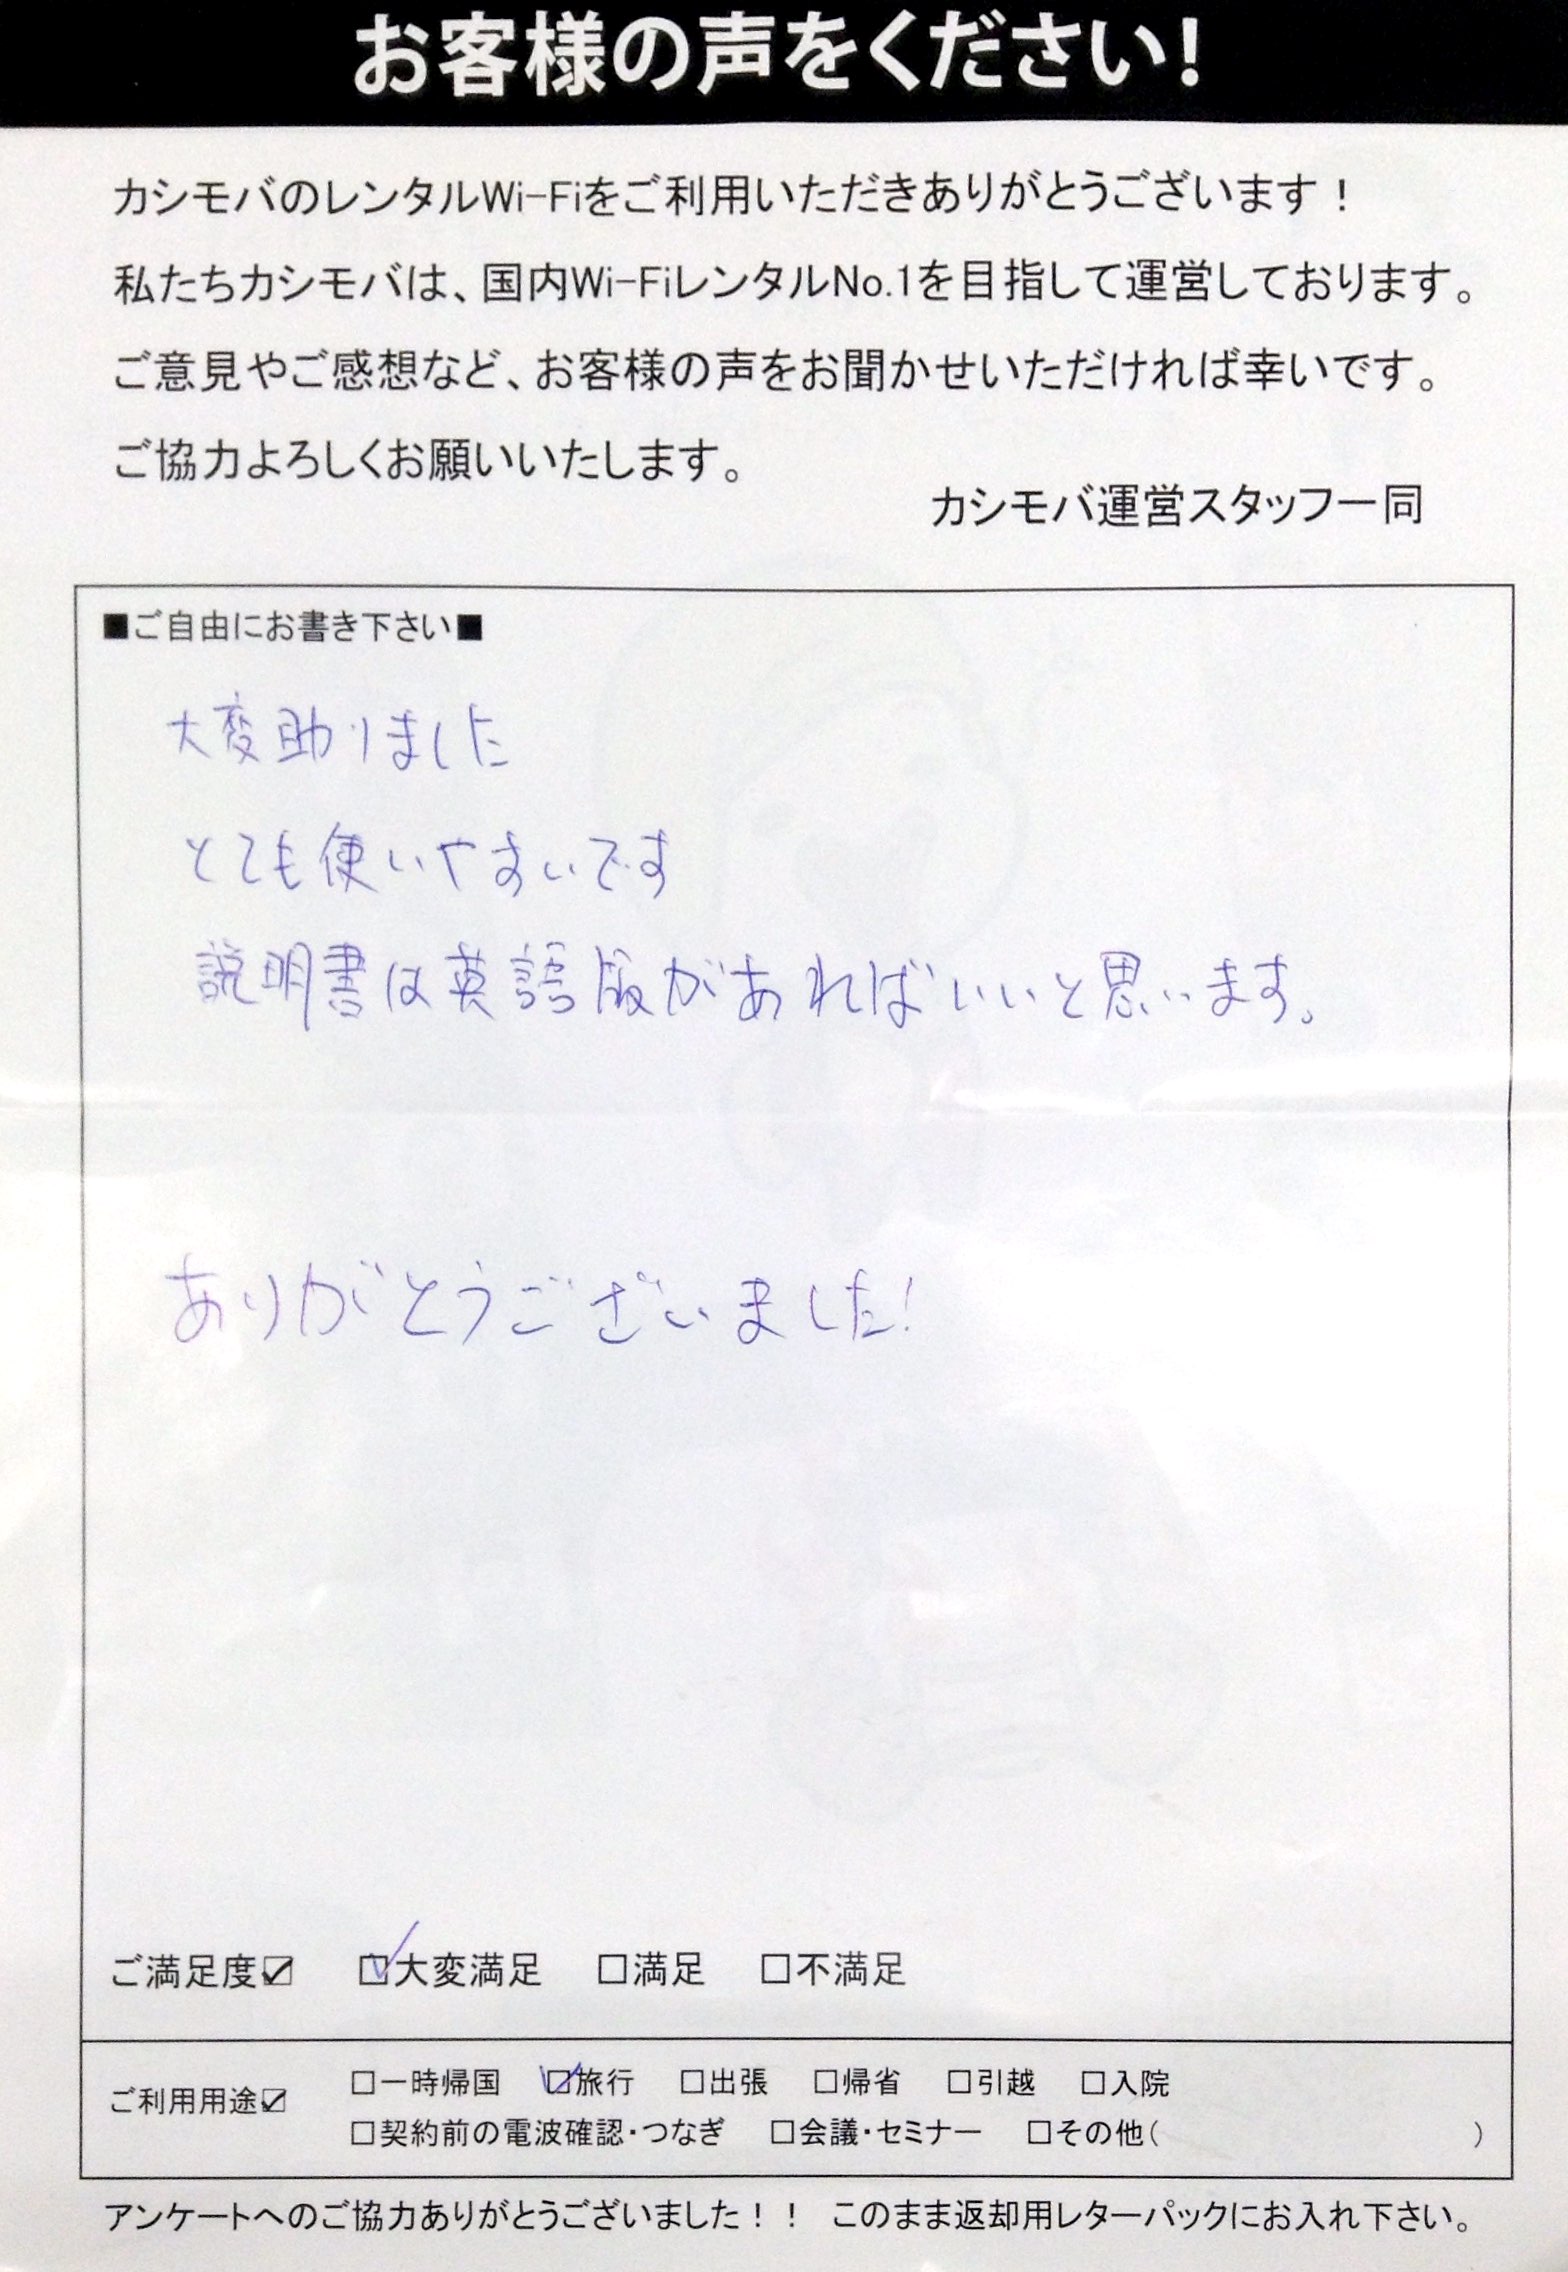 お客様の声をください!
カシモバのレンタルWi-Fiをご利用いただきありがとうございます！
私たちカシモバは、国内Wi-FiレンタルNo.1を目指して運営しております。
ご意見やご感想など、お客様の声をお聞かせいただければ幸いです。
ご協力よろしくお願いいたします。
カシモバ運営スタッフ一同
■ご自由にお書き下さい■
大変助りました
とても使いやすいです
説明書は英語版があればいいと思います。
ありがとうございました!
ご満足度☑ ☑大変満足 □満足 □不満足
ご利用用途☑ □一時帰国 ☑旅行 □出張 □帰省 □引越 □入院
□契約前の電波確認・つなぎ □会議・セミナー □その他( )
アンケートへのご協力ありがとうございました！！ このまま返却用レターパックにお入れ下さい。